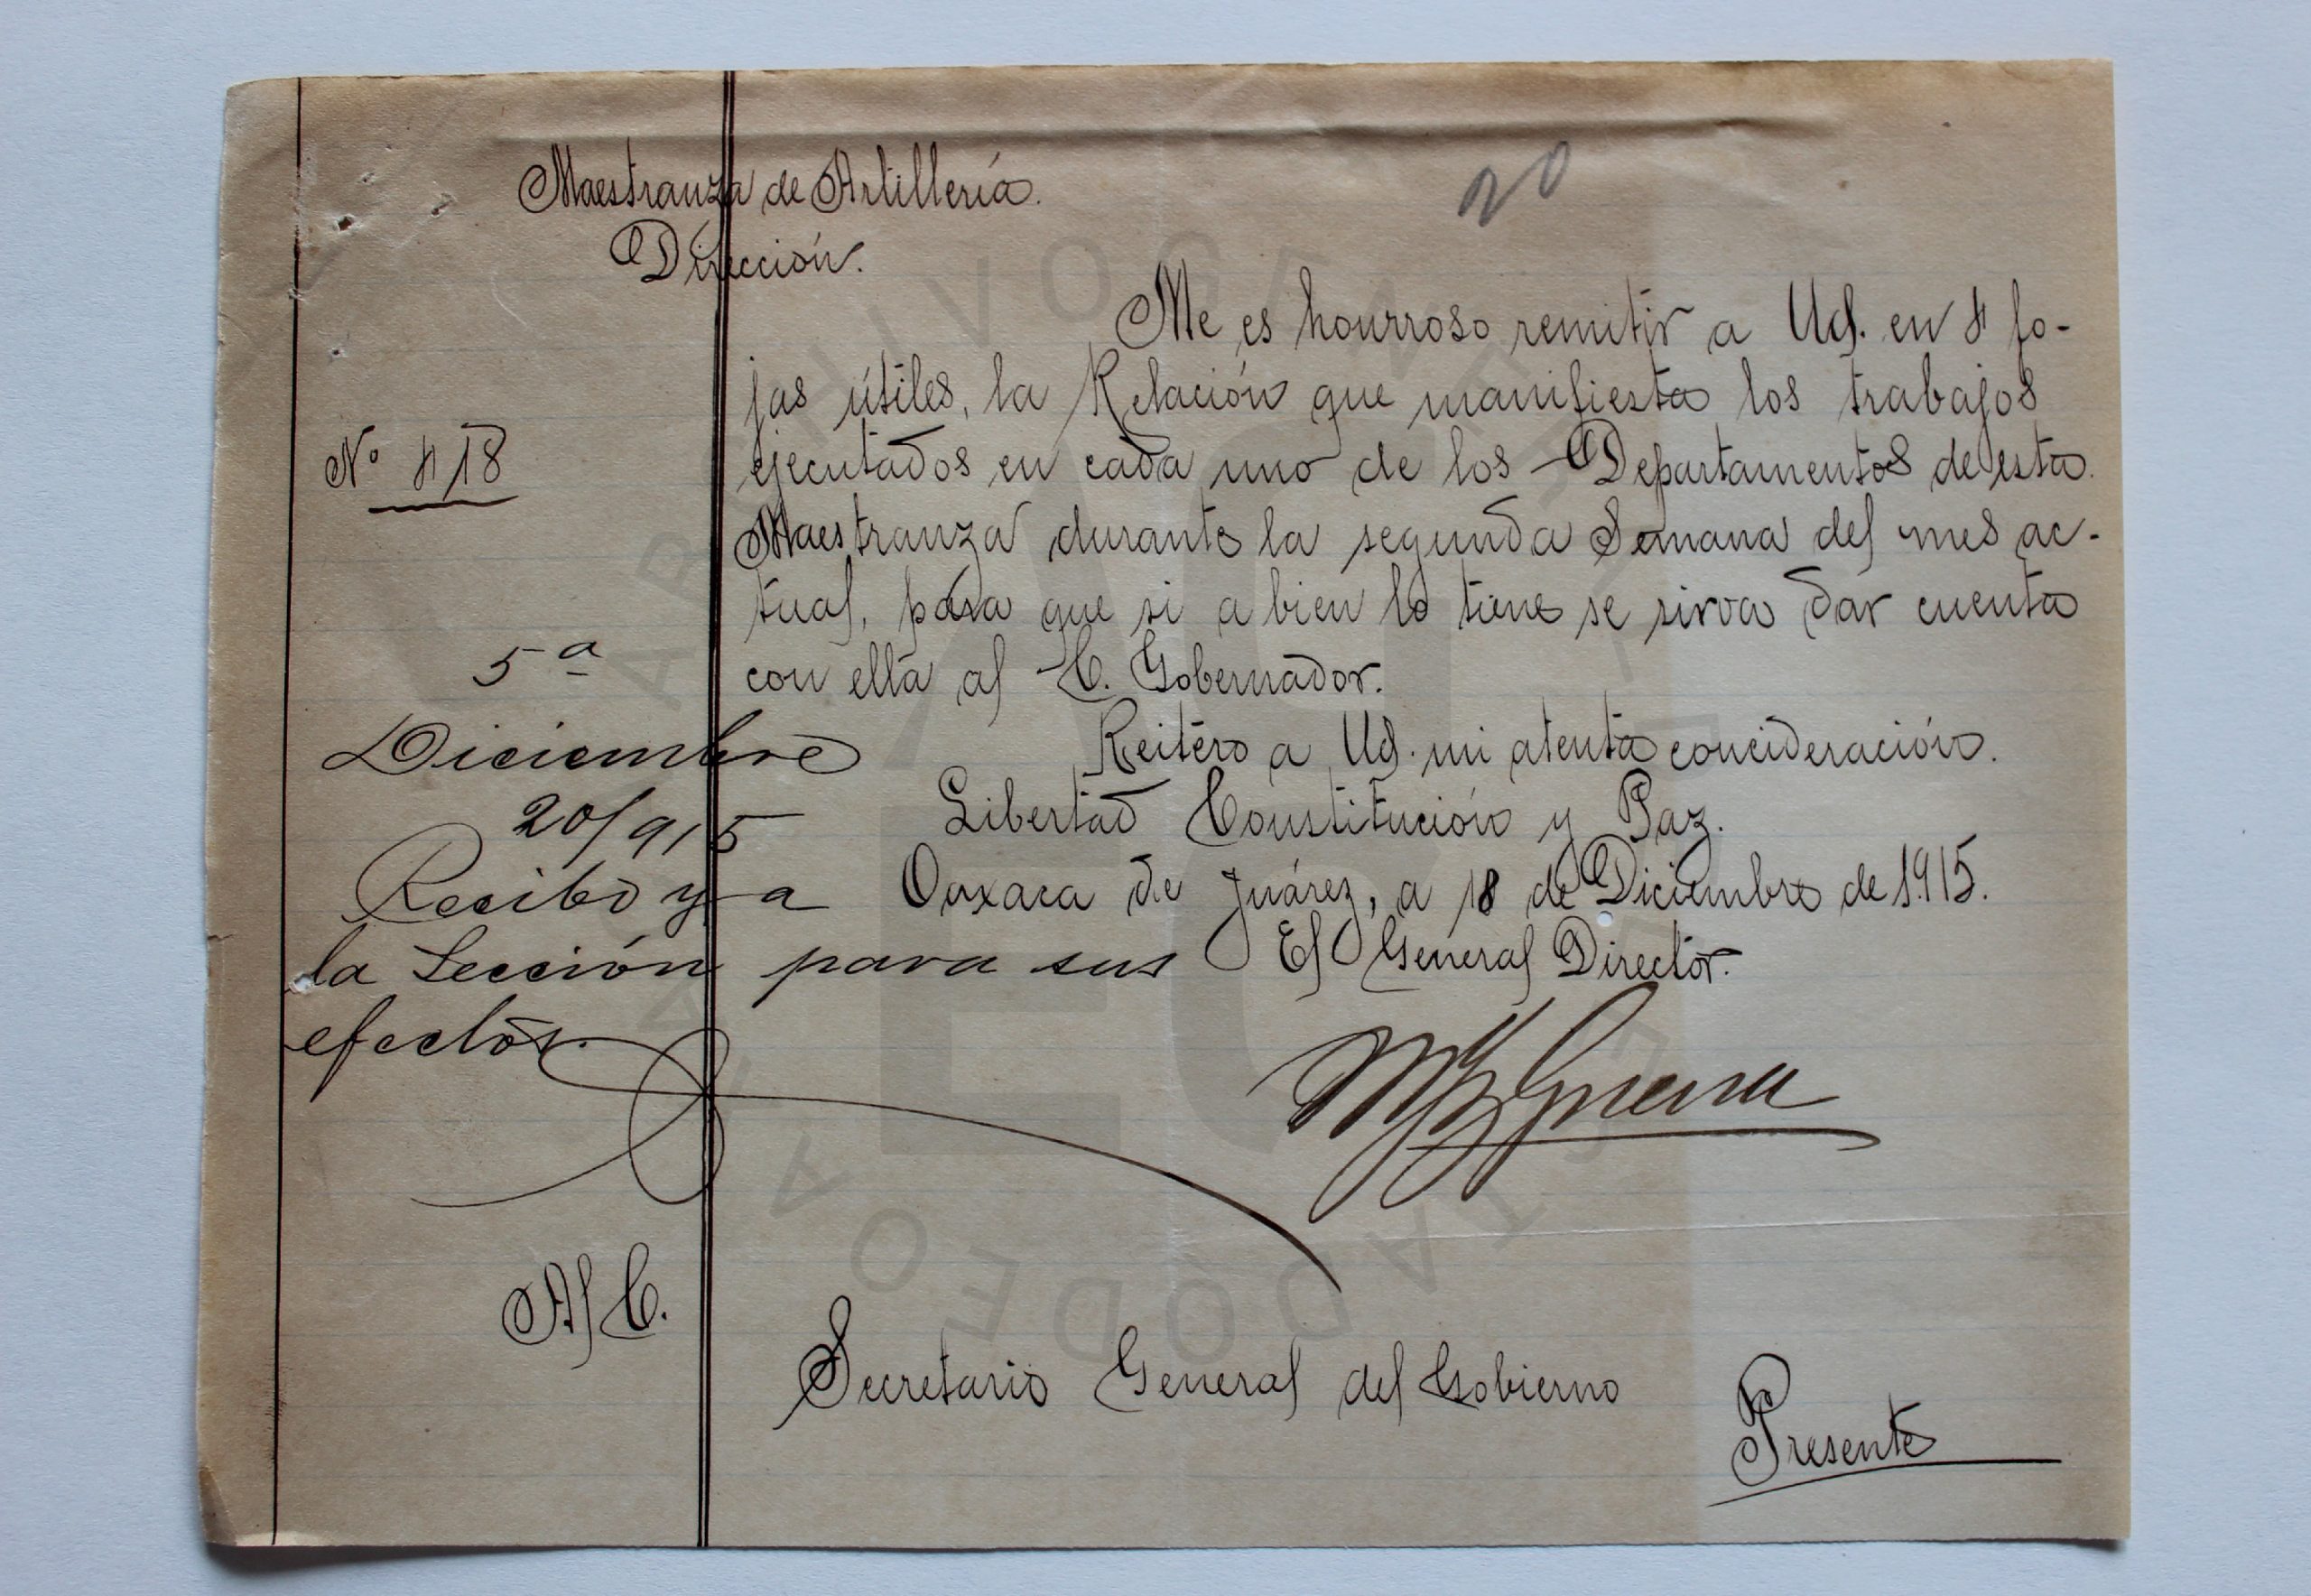 Maestranza de Artillería.
Dirección.
20
Me es hourroso remitir a Ud. en 4 fo-
jas útiles, la Relación que manifiesta los trabajos
ejecutados en cada uno de los Departamentos de esta
Maestranza durante la segunda Semana del mes ac-
tual, para que si a bien lo tiene se sirva dar cuenta
con ella al C. Gobernador.
Reitero a Ud. mi atenta concideración.
Libertad Constitución y Paz.
Oaxaca de Juárez, a 18 de Diciembre de 1915.
El General Director.
Nº 418
5ª
Diciembre
20/915
Recibo y a
la Sección para sus
efectos.
Al C.
Secretario General del Gobierno
Presente